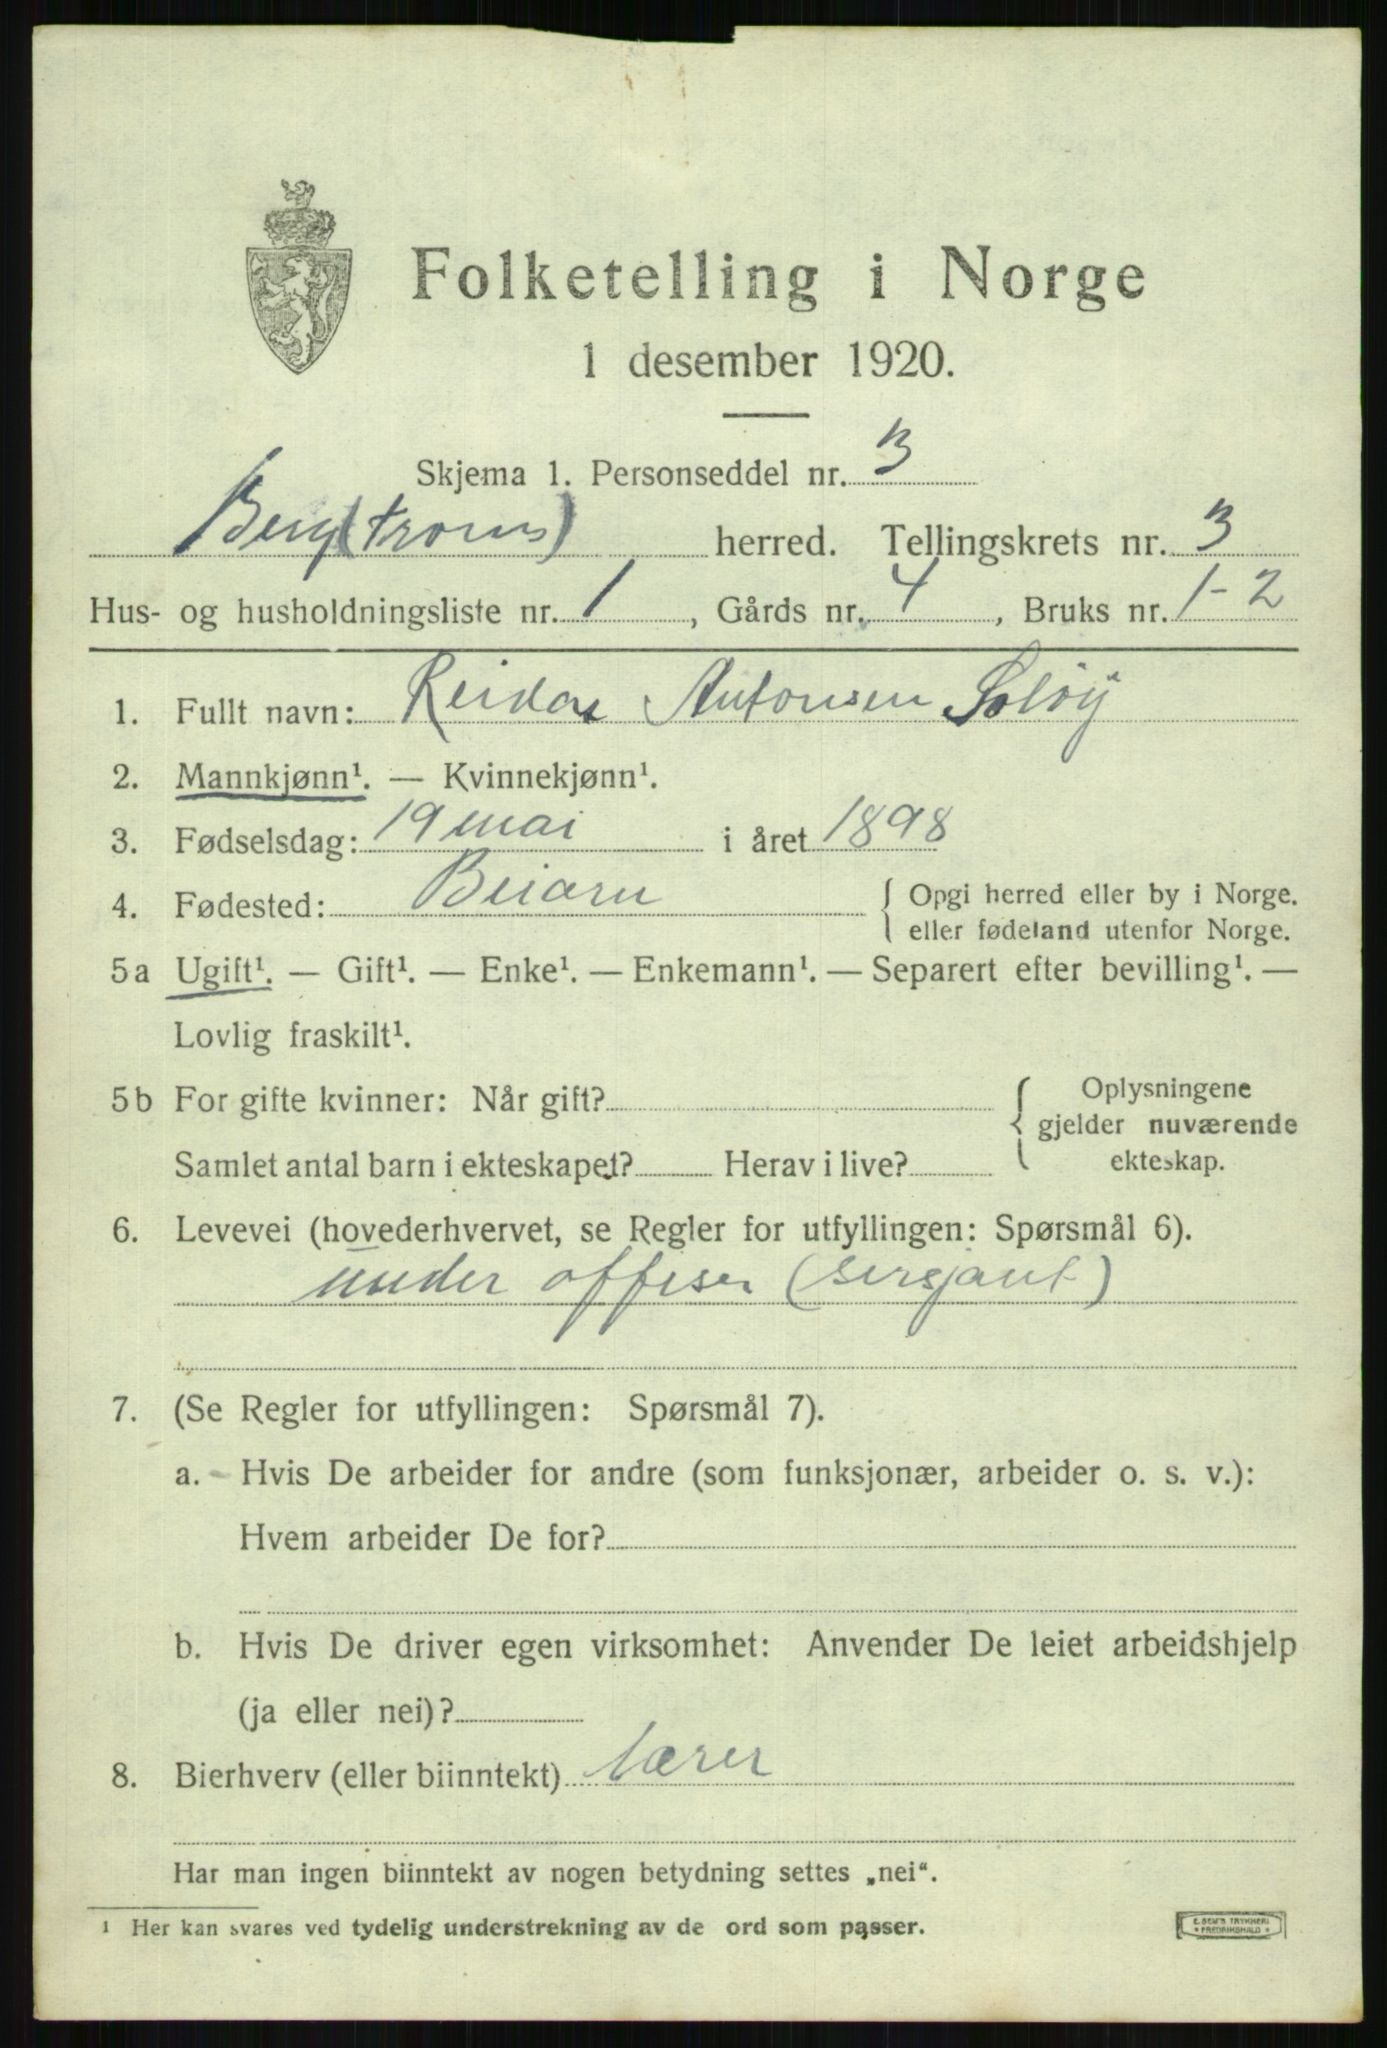 Folketelling i Norge
1 desember 1920.
Skjema 1. Personseddel nr. 3
Berg (troms) herred. Tellingskrets nr. 3
Hus- og husholdningsliste nr. 1, Gårds nr. 4, Bruks nr. 1-2
1. Fullt navn: Reidar Antonsen Soløy
2. Mannkjønn¹. — Kvinnekjønn¹.
3. Fødselsdag: 19 mai i året 1898
4. Fødested: Beiarn { Opgi herred eller by i Norge.
eller fødeland utenfor Norge.
5a Ugift¹. — Gift¹. — Enke¹. — Enkemann¹. — Separert efter bevilling¹. —
Lovlig fraskilt¹.
5b For gifte kvinner: Når gift? { Oplysningene
gjelder nuværende
Samlet antal barn i ekteskapet? Herav i live? ekteskap.
6. Levevei (hovederhvervet, se Regler for utfyllingen: Spørsmål 6).
under offiser (sersjant)
7. (Se Regler for utfyllingen: Spørsmål 7).
a. Hvis De arbeider for andre (som funksjonær, arbeider o. s. v.):
Hvem arbeider De for?
b. Hvis De driver egen virksomhet: Anvender De leiet arbeidshjelp
(ja eller nei)?
8. Bierhverv (eller biinntekt) lærer
Har man ingen biinntekt av nogen betydning settes „nei“.
¹ Her kan svares ved tydelig understrekning av de ord som passer.
E. SEM'S TRYKKERI
* FREDRIKSHALD *